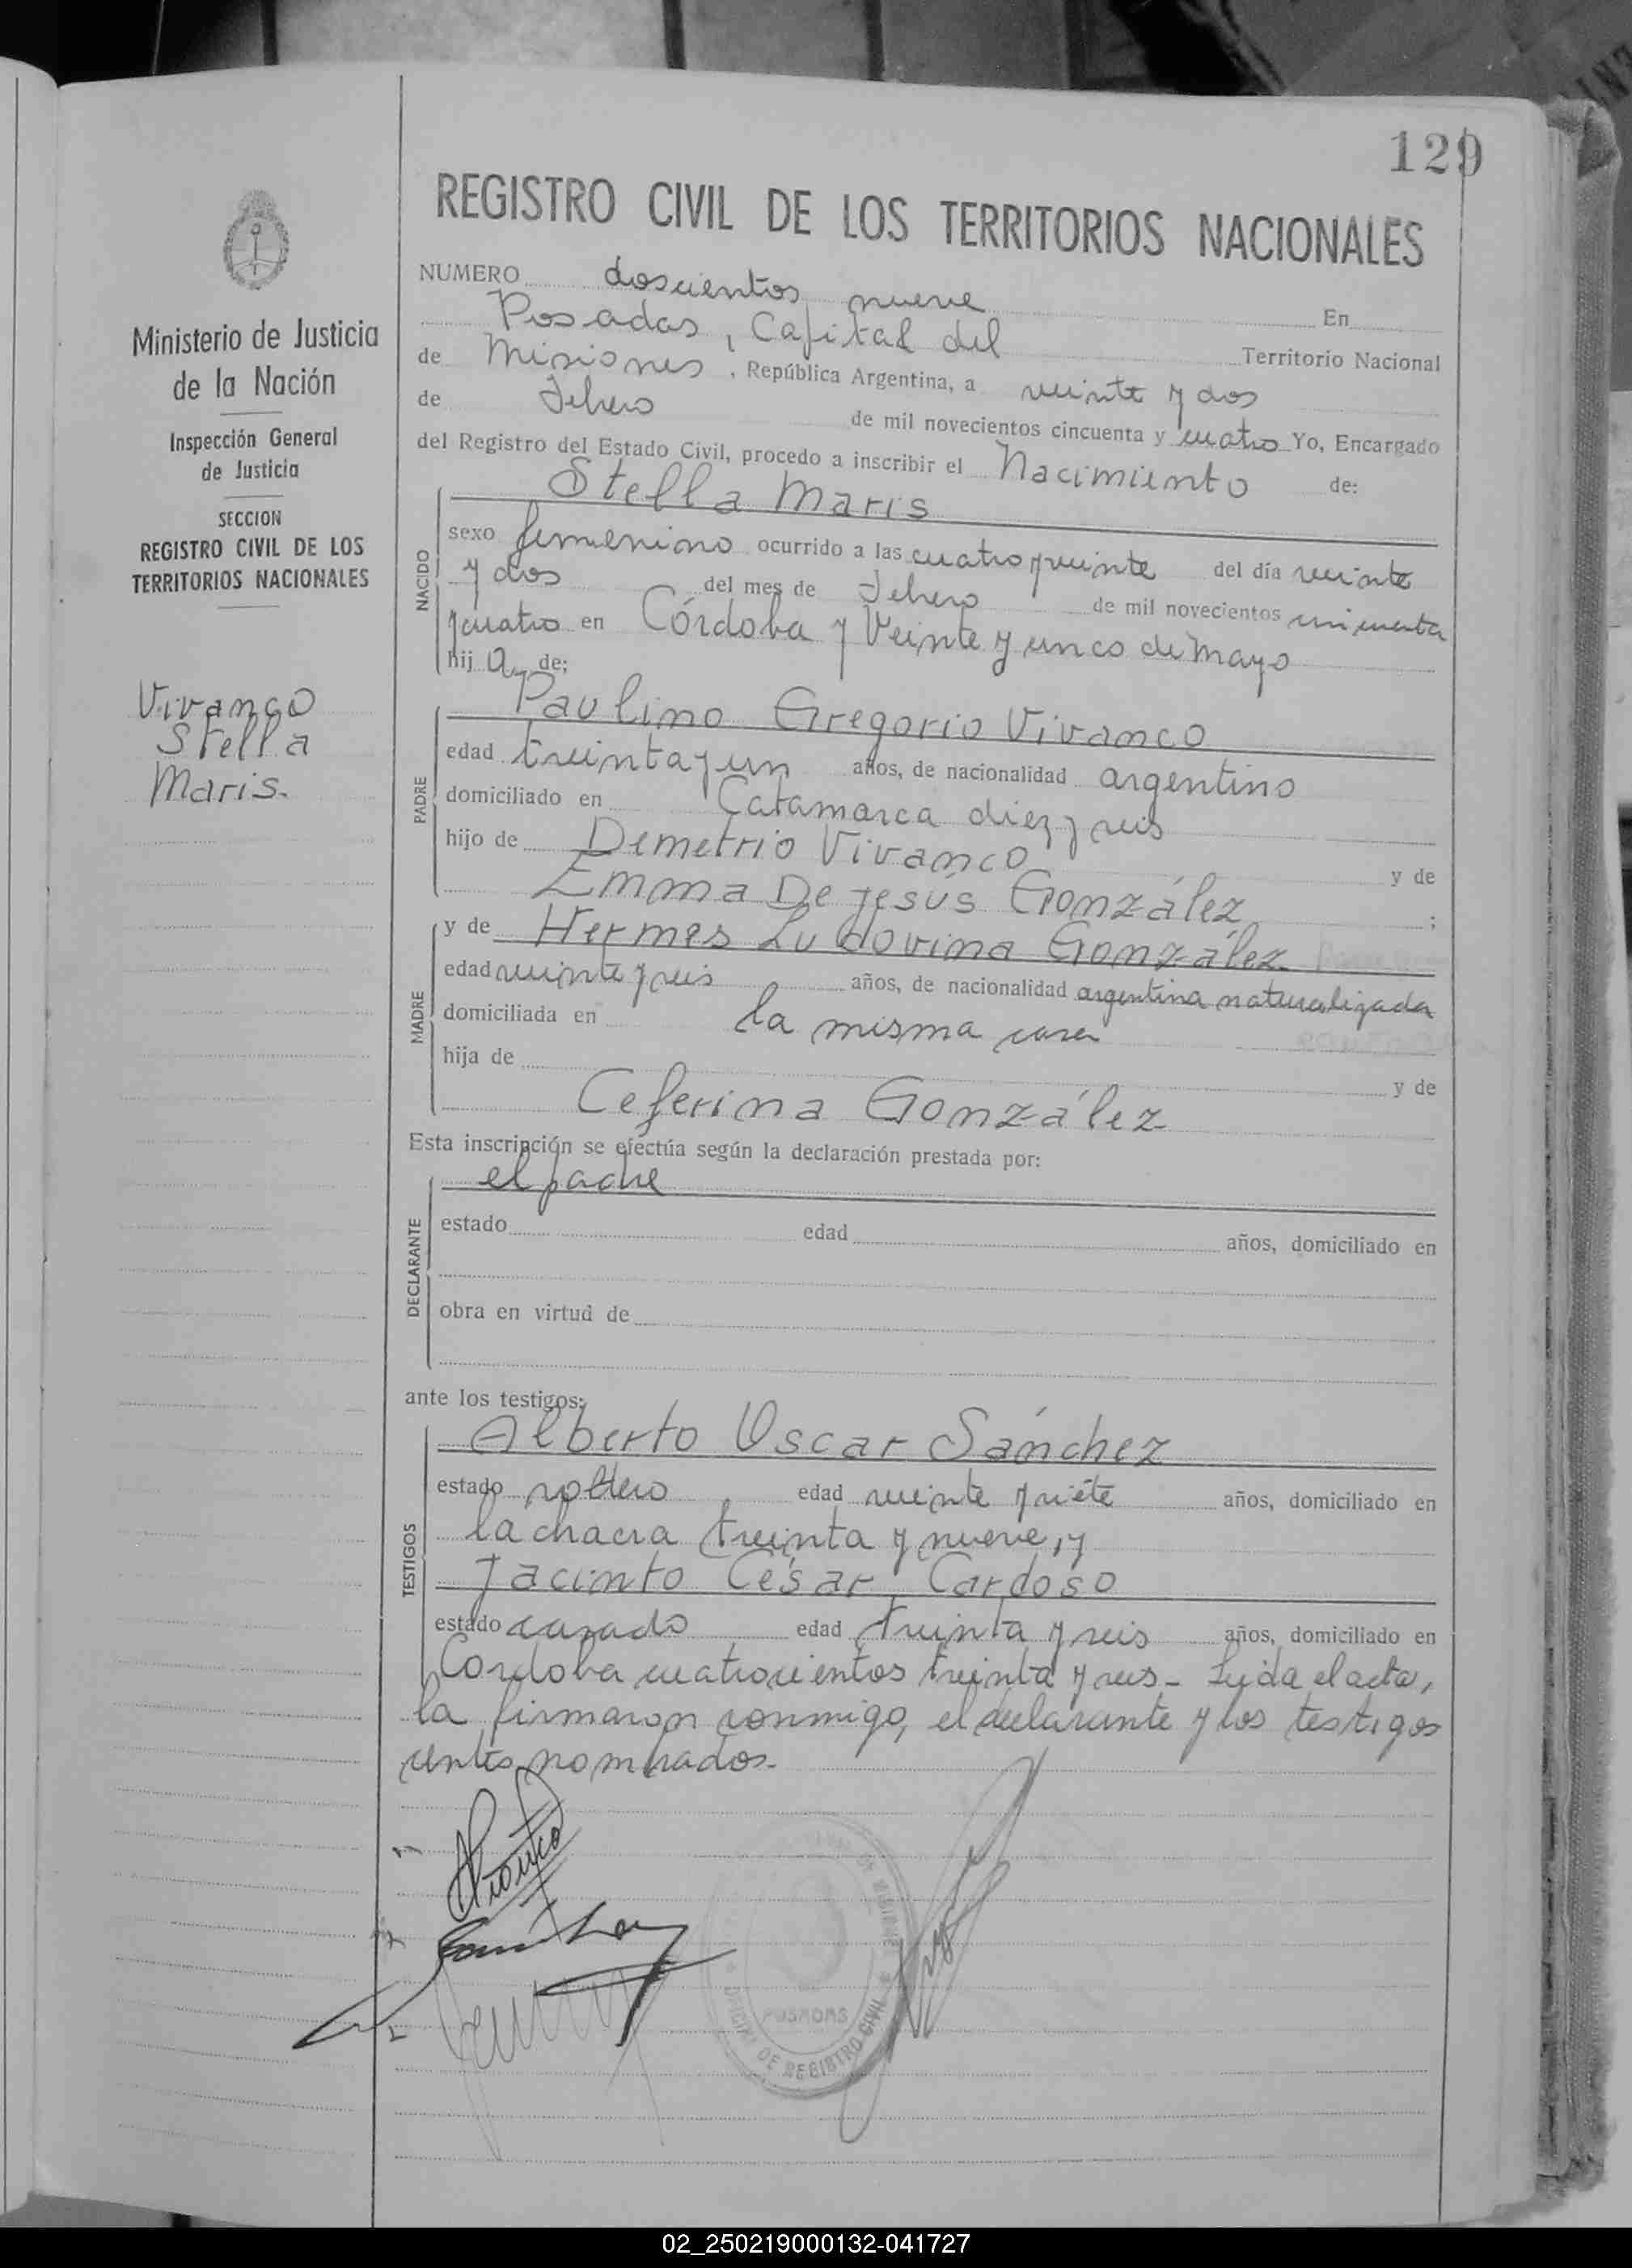 129
REGISTRO CIVIL DE LOS TERRITORIOS NACIONALES
Ministerio de Justicia
de la Nación
Inspección General
de Justicia
SECCION
REGISTRO CIVIL DE LOS
TERRITORIOS NACIONALES
Vivanco
Stella
Maris.
NUMERO doscientos nueve En
Posadas, Capital del Territorio Nacional
de Misiones, República Argentina, a veinte y dos
de Febrero de mil novecientos cincuenta y cuatro Yo, Encargado
del Registro del Estado Civil, procedo a inscribir el Nacimiento de:
NACIDO
Stella Maris
sexo femenino ocurrido a las cuatro y veinte del día veinte
y dos del mes de Febrero de mil novecientos cincuenta
y cuatro en Córdoba y Veinte y cinco de Mayo
hij a de:
PADRE
Paulino Gregorio Vivanco
edad treinta y un años, de nacionalidad argentino
domiciliado en Catamarca diez y seis
hijo de Demetrio Vivanco y de
Emma De Jesús González ;
MADRE
y de Hermes Ludovina González
edad veinte y seis años, de nacionalidad argentina naturalizada
domiciliada en la misma casa
hija de y de
Ceferina González
Esta inscripción se efectúa según la declaración prestada por:
DECLARANTE
el padre
estado edad años, domiciliado en
obra en virtud de
ante los testigos:
TESTIGOS
Alberto Oscar Sánchez
estado soltero edad veinte y siete años, domiciliado en
la chacra treinta y nueve, y
Jacinto César Cardoso
estado casado edad treinta y seis años, domiciliado en
Cordoba cuatrocientos treinta y seis - Leida el acta,
la firmaron conmigo, el declarante y los testigos
antes nombrados.-
POSADAS
OFICINA DE REGISTRO CIVIL
02_250219000132-041727